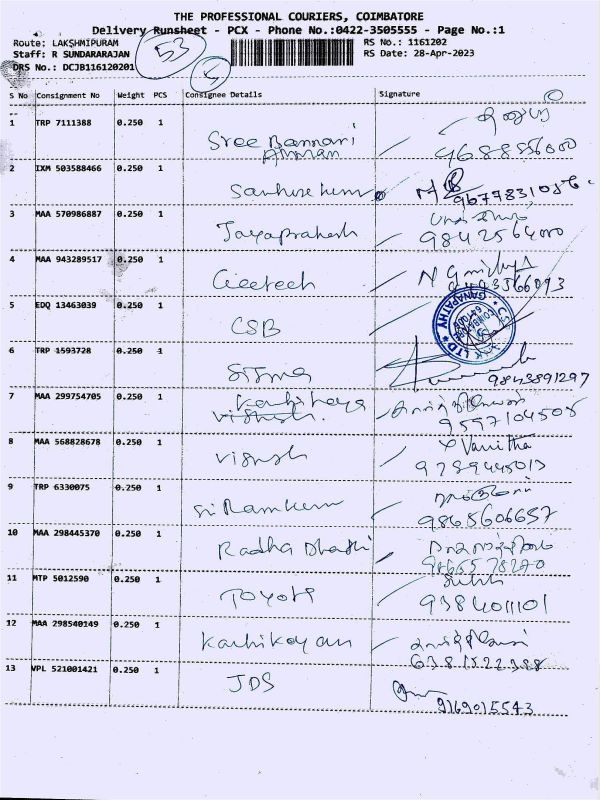 THE PROFESSIONAL COURIERS, COIMBATORE
Delivery Runsheet - PCX - Phone No.:0422-3505555 - Page No.:1
Route: LAKSHMIPURAM RS No.: 1161202
Staff: R SUNDARARAJAN 53 RS Date: 28-Apr-2023
DRS No.: DCJB116120201
S No Consignment No Weight PCS Consignee Details Signature
1 TRP 7111388 0.250 1 Sree Bannari
Amman 9688556000
2 IXM 503588466 0.250 1
3 MAA 570986887 0.250 1 Jayaprakash 9842564000
4 MAA 943289517 0.250 1 Geetech
5 EDQ 13463039 0.250 1 CSB GANAPATHY
6 TRP 1593728 0.250 1 9843891297
7 MAA 299754705 0.250 1 Karthikaya
Vignesh. 9597104505
8 MAA 568828678 0.250 1 Vignesh Vanitha
9789445013
9 TRP 6330075 0.250 1 Sri Ram
9865606657
10 MAA 298445370 0.250 1 Radha
9866578270
11 MTP 5012590 0.250 1 TOYOTA 9384011101
12 MAA 298540149 0.250 1 Karthikayan
6381522388
13 VPL 521001421 0.250 1 JDS
9169015543